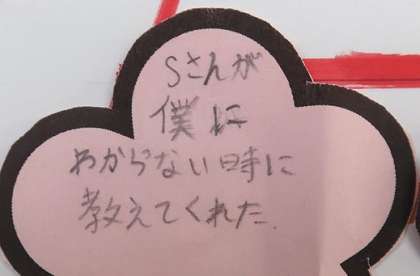 Sさんが
僕に
わからない時に
教えてくれた.